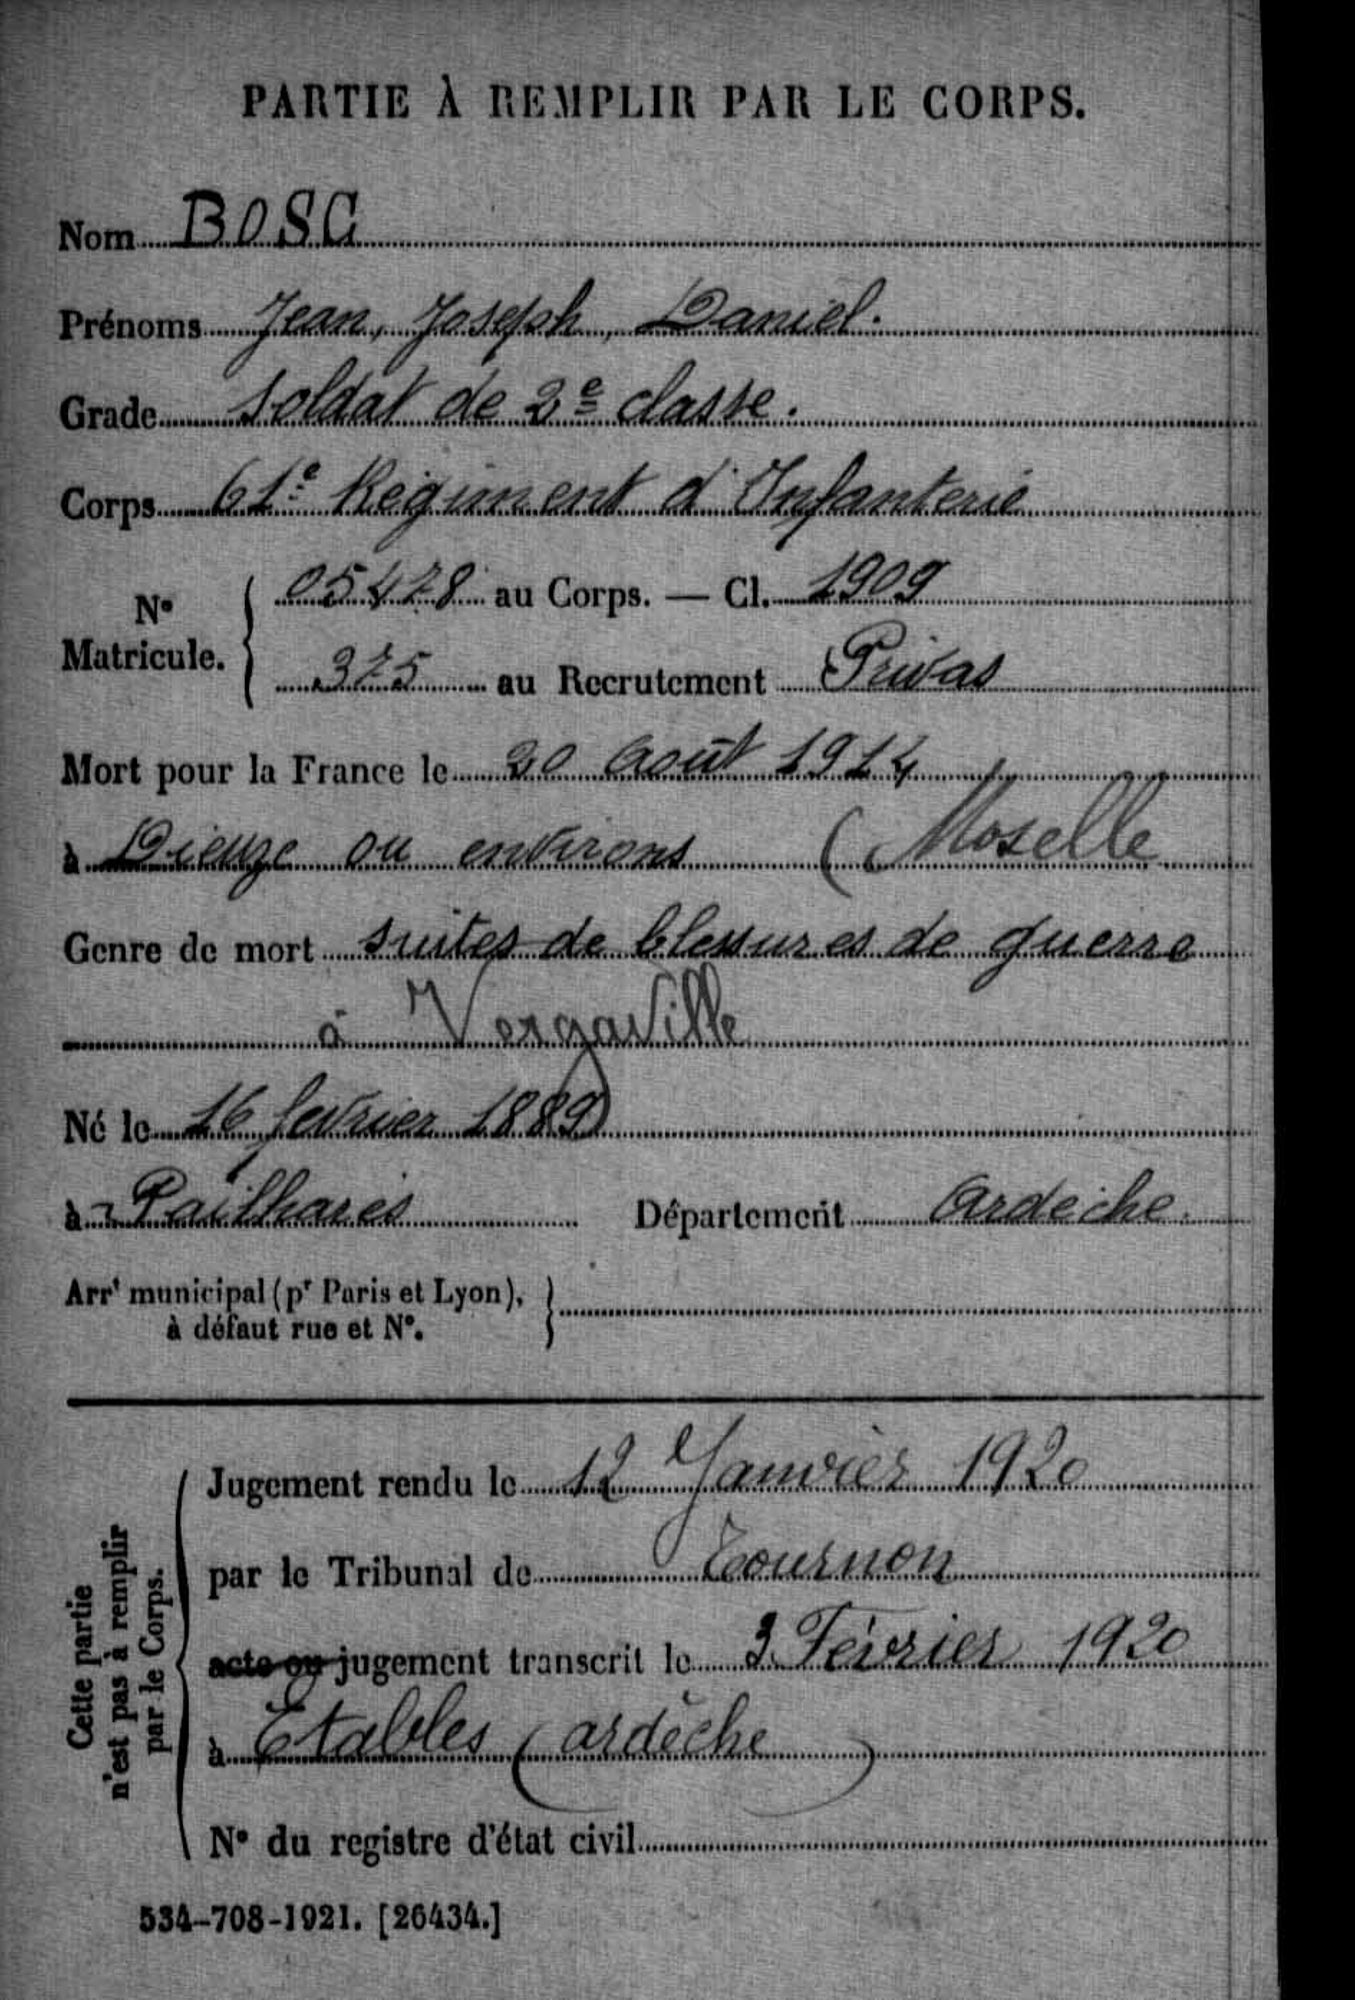 PARTIE À REMPLIR PAR LE CORPS.
Nom BOSC
Prénoms Jean, Joseph, Daniel.
Grade Soldat de 2e classe.
Corps 61e Régiment d'Infanterie
N° Matricule. 05478 au Corps. — Cl. 1909
375 au Recrutement Privas
Mort pour la France le 20 Août 1914
à Dieuze ou environs (Moselle
Genre de mort suites de blessures de guerre
à Vergaville
Né le 16 février 1889
à Pailharès Département Ardèche.
Arrt municipal (pr Paris et Lyon),
à défaut rue et N°.
Cette partie n'est pas à remplir par le Corps.
Jugement rendu le 12 Janvier 1920
par le Tribunal de Tournon
acte ou jugement transcrit le 3 Février 1920
à Etables (ardèche)
N° du registre d'état civil
534-708-1921. [26434.]